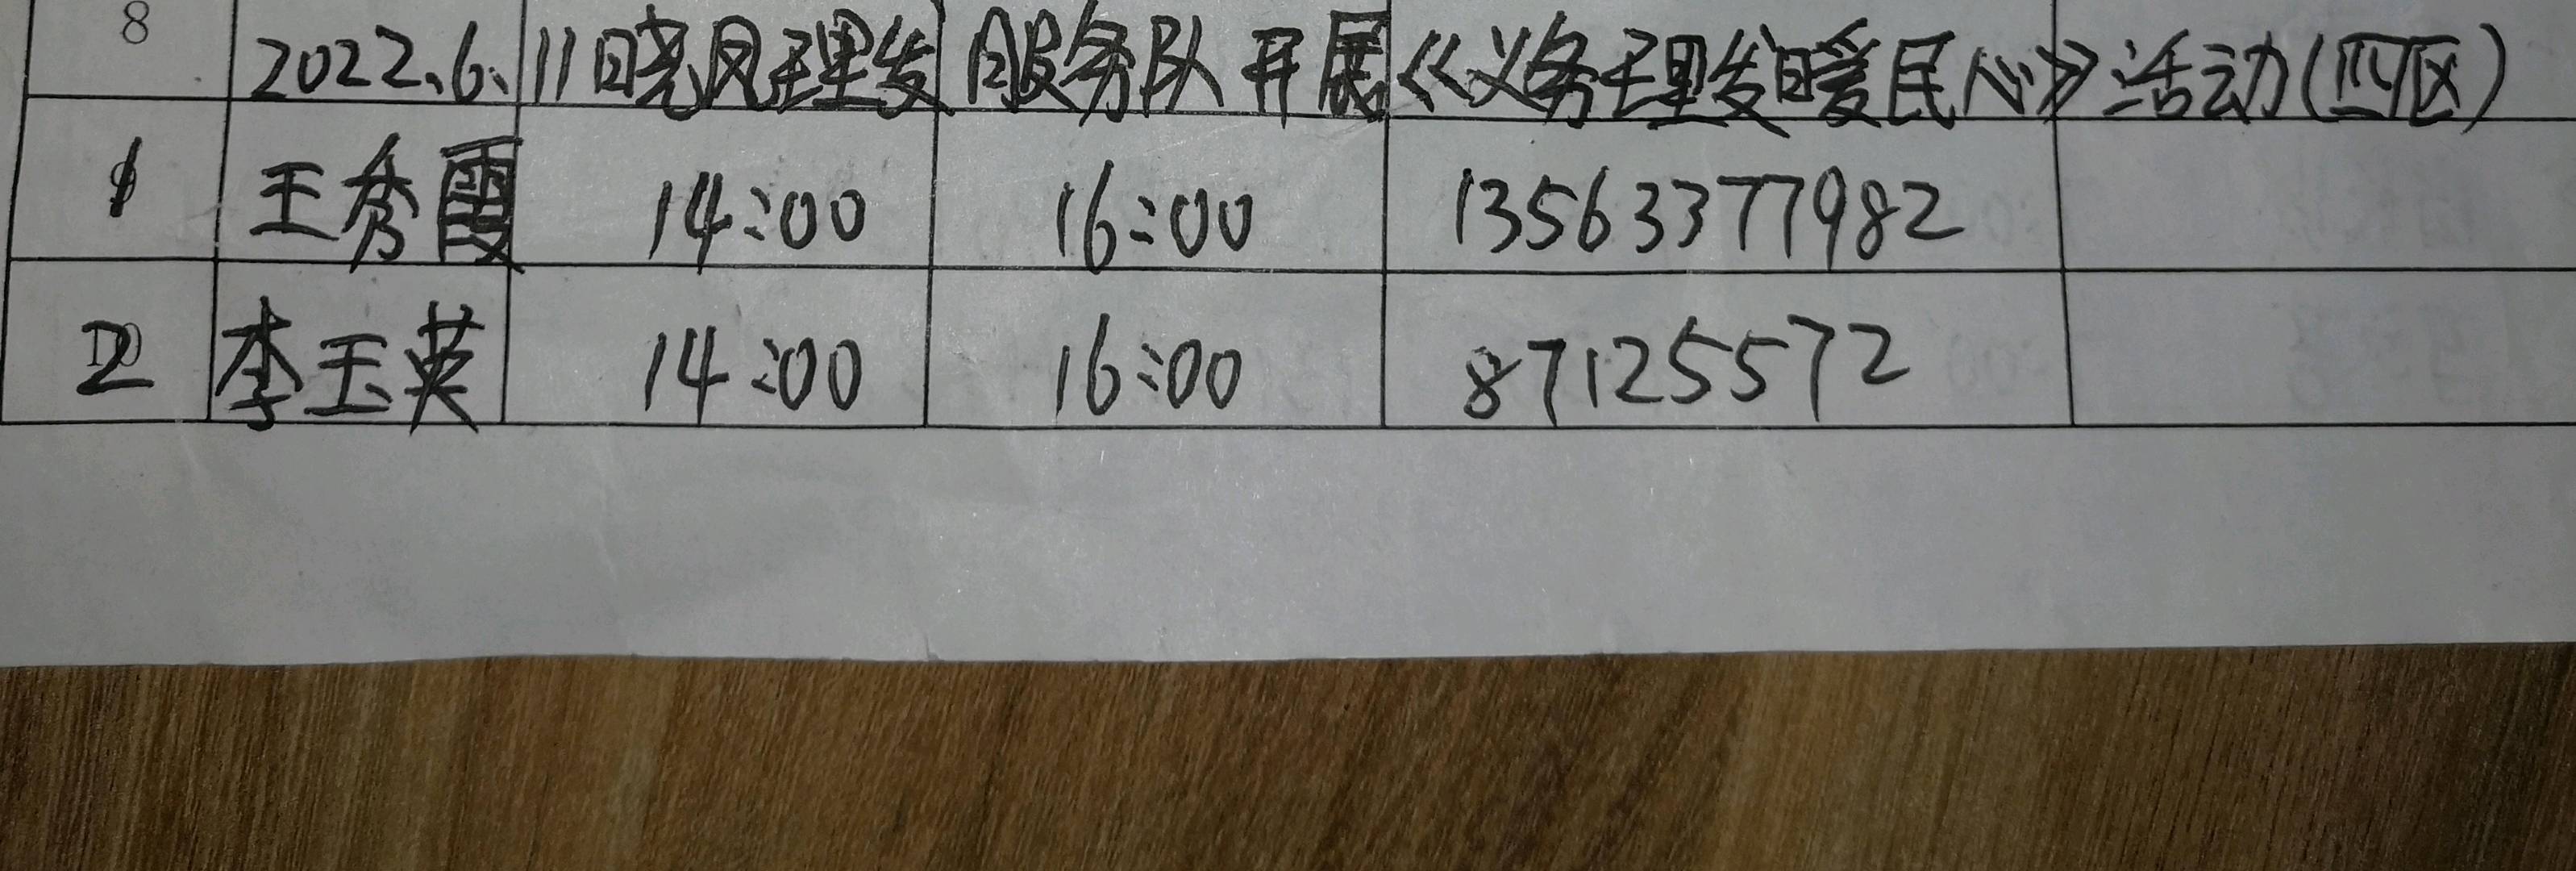 8 2022.6.11日晓风理发服务队开展《义务理发暖民心》活动(四区)
1 王秀霞 14:00 16:00 13563377982
2 李玉英 14:00 16:00 87125572